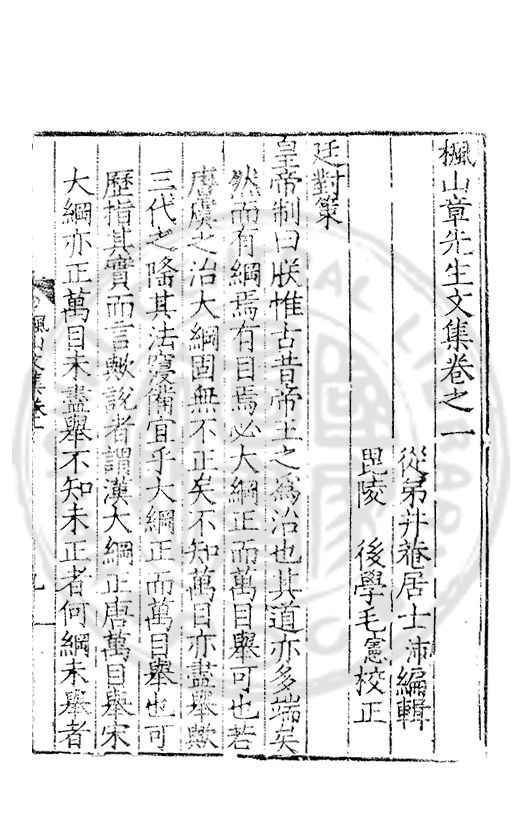 楓山章先生文集卷之一
從弟井菴居士沛編輯
毘陵 後學毛憲校正
廷對策
皇帝制曰朕惟古昔帝王之為治也其道亦多端矣
然而有綱焉有目焉必大綱正而萬目舉可也若
唐虞之治大綱固無不正矣不知萬目亦盡舉歟
三代之隆其法寖備宜乎大綱正而萬目舉也可
歷指其實而言歟說者謂漢大綱正唐萬目舉宋
大綱亦正萬目未盡舉不知未正者何綱未舉者
楓山文集卷一